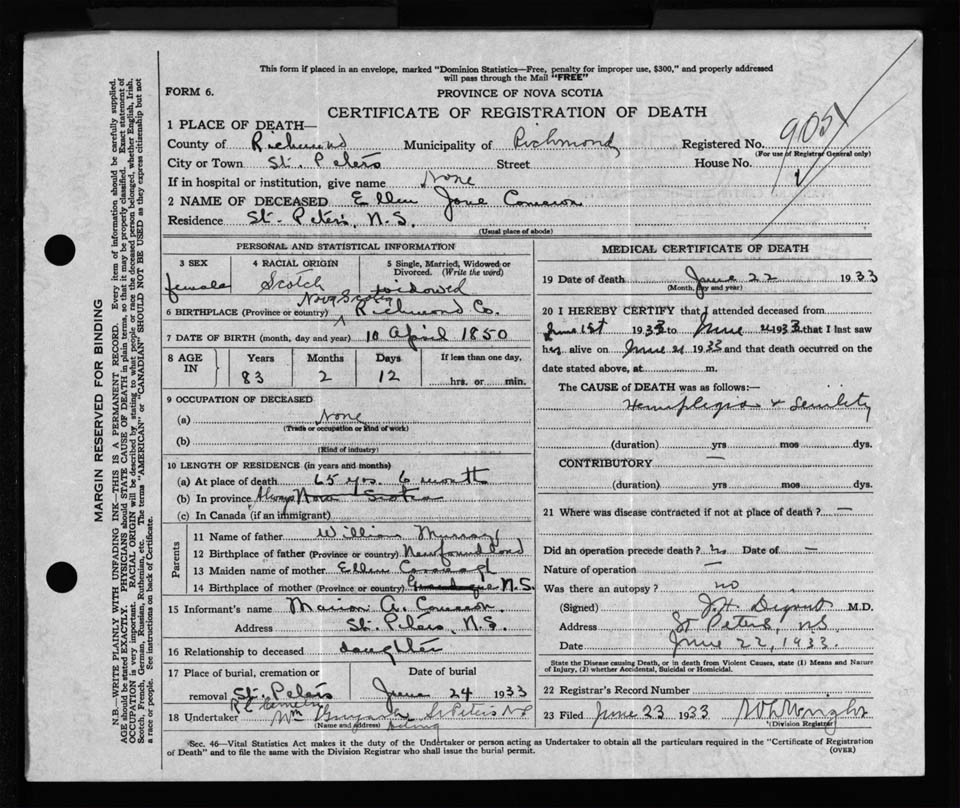 This form if placed in an envelope, marked "Dominion Statistics—Free, penalty for improper use, $300," and properly addressed
will pass through the Mail "FREE"
FORM 6.
PROVINCE OF NOVA SCOTIA
CERTIFICATE OF REGISTRATION OF DEATH
1 PLACE OF DEATH—
County of Richmond Municipality of Richmond Registered No. 905
(For use of Registrar General only)
City or Town St. Peters Street House No.
If in hospital or institution, give name None
2 NAME OF DECEASED Ellen Jane Cameron
Residence St. Peter's, N.S.
(Usual place of abode)
MARGIN RESERVED FOR BINDING
N.B.—WRITE PLAINLY WITH UNFADING INK—THIS IS A PERMANENT RECORD. Every item of information should be carefully supplied.
AGE should be stated EXACTLY. PHYSICIANS should STATE CAUSE OF DEATH in plain terms, so that it may be properly classified. Exact statement of
OCCUPATION is very important. RACIAL ORIGIN will be described by stating to what people or race the deceased person belonged, whether English, Irish,
Scotch, French, German, Russian, Ruthenian, etc. The terms "AMERICAN" or "CANADIAN" SHOULD NOT BE USED as they express citizenship but not
a race or people. See instructions on back of Certificate.
PERSONAL AND STATISTICAL INFORMATION
3 SEX 4 RACIAL ORIGIN 5 Single, Married, Widowed or
Divorced. (Write the word)
female Scotch widowed
Nova Scotia
6 BIRTHPLACE (Province or country) Richmond Co.
7 DATE OF BIRTH (month, day and year) 10 April 1850
8 AGE IN Years Months Days If less than one day,
83 2 12 hrs. or min.
9 OCCUPATION OF DECEASED
(a) None
(Trade or occupation or kind of work)
(b)
(Kind of industry)
10 LENGTH OF RESIDENCE (in years and months)
(a) At place of death 65 yrs. 6 month
(b) In province Always Nova Scotia
(c) In Canada (if an immigrant)
Parents
11 Name of father William Murray
12 Birthplace of father (Province or country) Newfoundland
13 Maiden name of mother Ellen
14 Birthplace of mother (Province or country) N.S.
15 Informant's name Marion A. Cameron
Address St. Peters, N.S.
16 Relationship to deceased daughter
17 Place of burial, cremation or Date of burial
removal St. Peters June 24 1933
R C Cemetery
18 Undertaker Wm St Peters N S
(Name and address)
Acting
MEDICAL CERTIFICATE OF DEATH
19 Date of death June 22 1933
(Month, day and year)
20 I HEREBY CERTIFY that I attended deceased from
June 1st 1933 to June 21 1933 that I last saw
her alive on June 21 1933 and that death occurred on the
date stated above, at m.
The CAUSE of DEATH was as follows:—
Hemiplegia & Senility
(duration) yrs mos dys.
CONTRIBUTORY —
(duration) yrs mos dys.
21 Where was disease contracted if not at place of death? —
Did an operation precede death? no Date of —
Nature of operation —
Was there an autopsy? no
(Signed) M.D.
Address St Peters, NS
Date June 22, 1933.
State the Disease causing Death, or in death from Violent Causes, state (1) Means and Nature
of Injury, (2) whether Accidental, Suicidal or Homicidal.
22 Registrar's Record Number
23 Filed June 23 1933
(Division Registrar)
Sec. 46—Vital Statistics Act makes it the duty of the Undertaker or person acting as Undertaker to obtain all the particulars required in the "Certificate of Registration
of Death" and to file the same with the Division Registrar who shall issue the burial permit. (OVER)